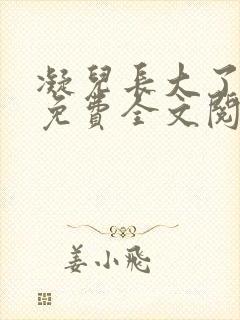 凝兒長大了
免費全文閱
姜小飛